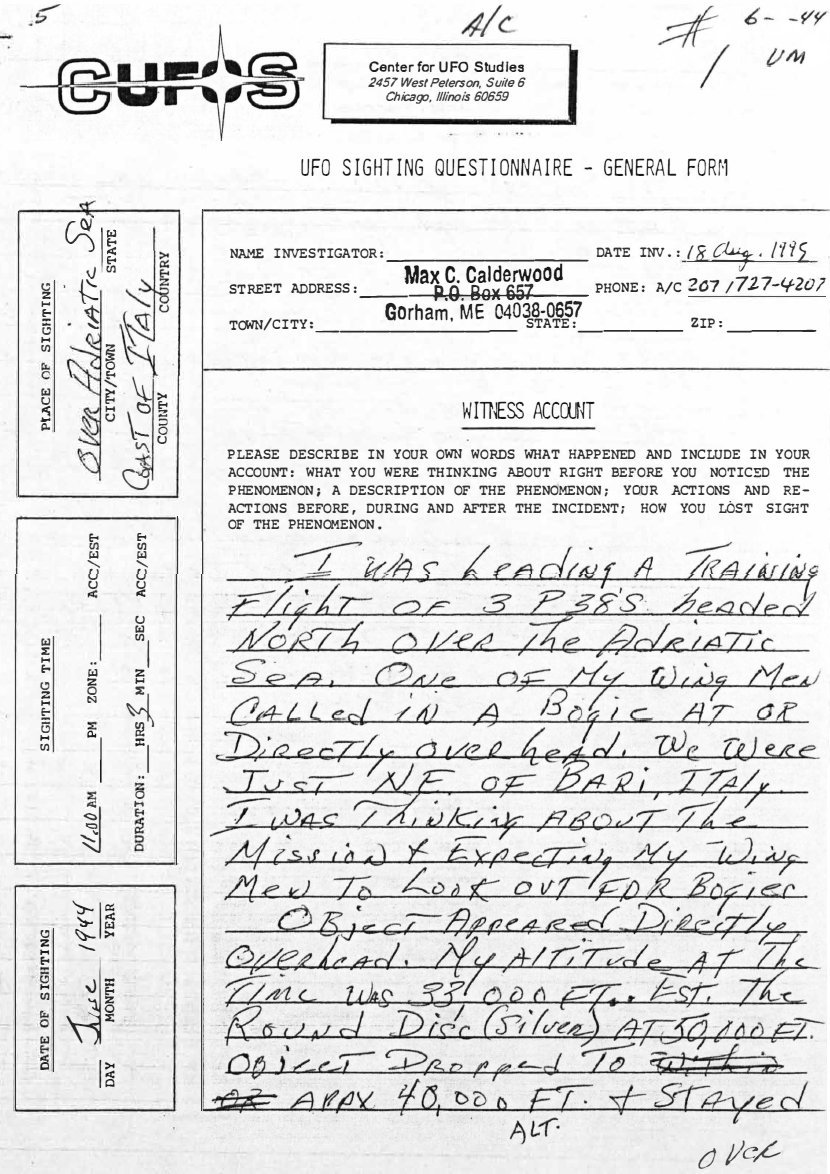 .5
A/C
# 6- -44
1 UM
CUFOS
Center for UFO Studies
2457 West Peterson, Suite 6
Chicago, Illinois 60659
UFO SIGHTING QUESTIONNAIRE - GENERAL FORM
PLACE OF SIGHTING
OVER ADRIATIC SEA
CITY/TOWN STATE
COAST OF ITALY
COUNTY COUNTRY
SIGHTING TIME
11.00 AM PM ZONE: ACC/EST
DURATION: HRS 3 MIN SEC ACC/EST
DATE OF SIGHTING
June 1944
DAY MONTH YEAR
NAME INVESTIGATOR: DATE INV.: 18 Aug. 1995
Max C. Calderwood
STREET ADDRESS: P.O. Box 657 PHONE: A/C 207 / 727-4207
Gorham, ME 04038-0657
TOWN/CITY: STATE: ZIP:
WITNESS ACCOUNT
PLEASE DESCRIBE IN YOUR OWN WORDS WHAT HAPPENED AND INCLUDE IN YOUR
ACCOUNT: WHAT YOU WERE THINKING ABOUT RIGHT BEFORE YOU NOTICED THE
PHENOMENON; A DESCRIPTION OF THE PHENOMENON; YOUR ACTIONS AND RE-
ACTIONS BEFORE, DURING AND AFTER THE INCIDENT; HOW YOU LOST SIGHT
OF THE PHENOMENON.
I WAS LEADING A TRAINING
Flight OF 3 P38'S headed
NORTH OVER The ADRIATIC
SeA. ONe OF My Wing Men
CALLed IN A Bogie AT OR
Directly over head. We Were
JUST NE. OF BARI, ITALY.
I WAS ThinKing ABOUT The
Mission & Expecting My Wing
Men To Look OUT FOR Bogies
OBject Appeared Directly
Overhead. My Altitude AT The
Time Was 33,000 FT.. EST. The
Round Disc (Silver) AT 50,000 FT.
OBject Dropped To Within
OR APPX 40,000 FT. & STAyed
ALT.
OVER